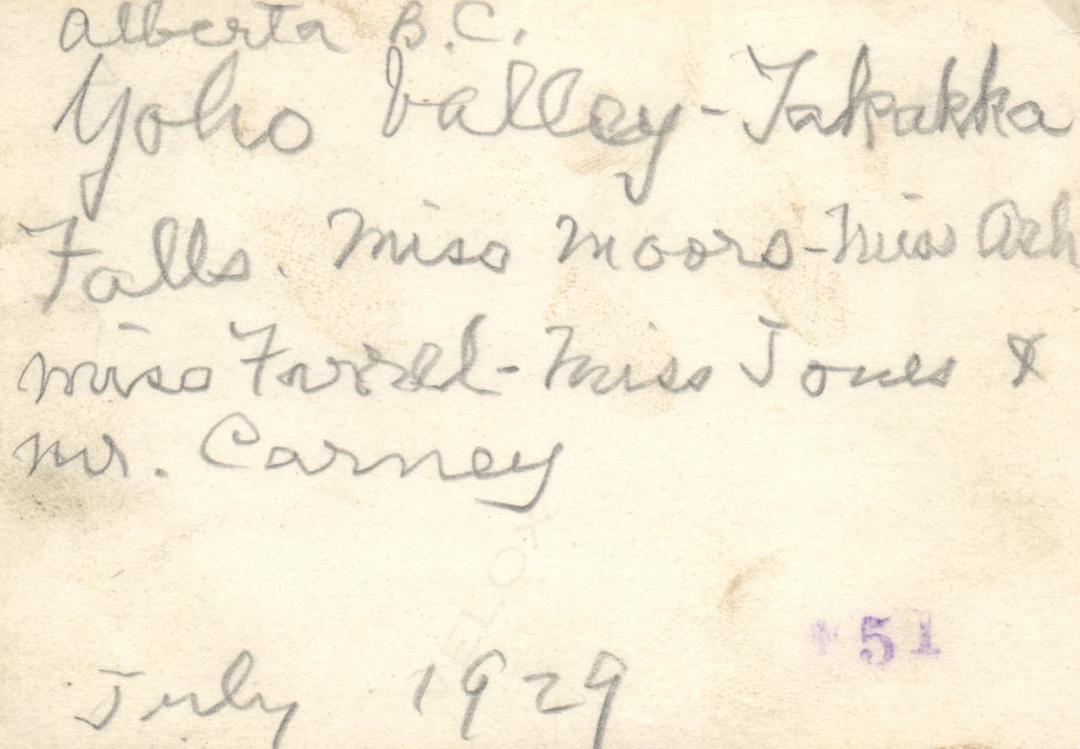 Alberta B.C.
Yoho Valley - Takakka
Falls. Miss Moors - Miss Ash
Miss Farrel - Miss Jones &
Mr. Carney
VELOX
51
July 1929